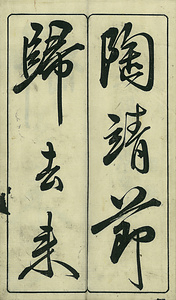 陶靖節
歸去来